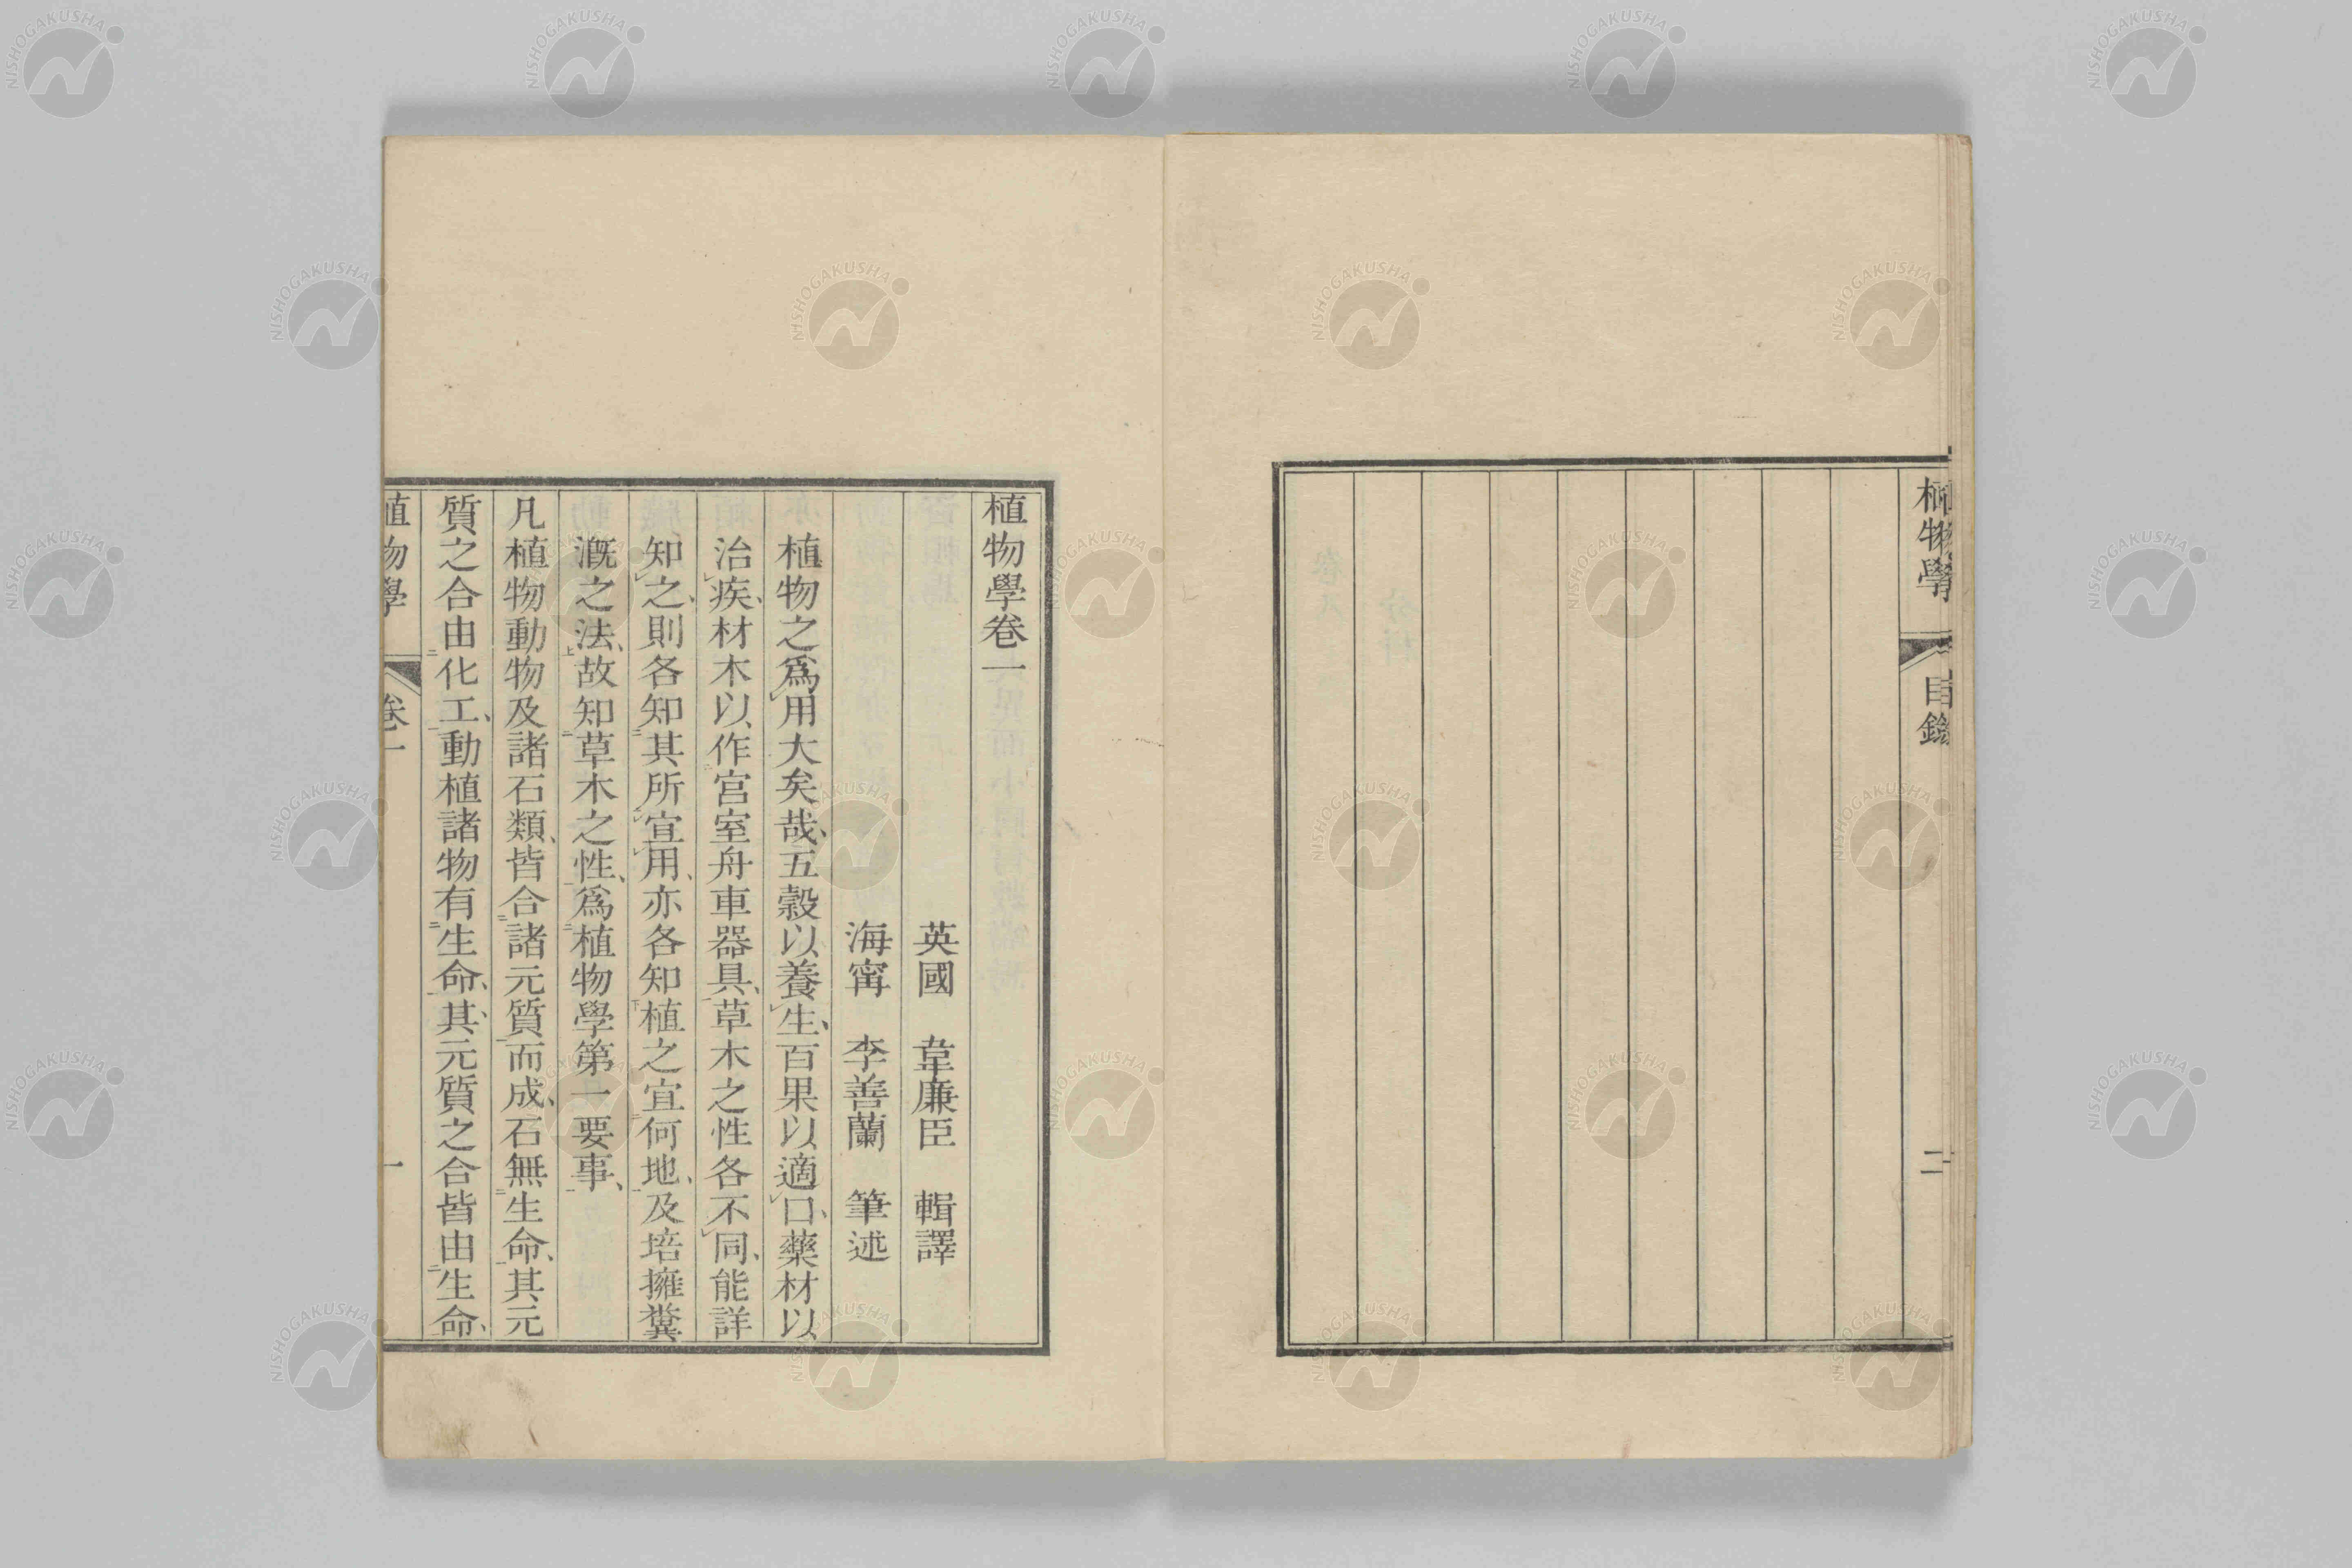 植物學
目錄
二
植物學卷一
英國　韋廉臣　輯譯
海甯　李善蘭　筆述
植物之爲用大矣哉、五穀以養生、百果以適口、藥材以
治疾、材木以作宮室舟車器具、草木之性各不同、能詳
知之、則各知其所宜用、亦各知植之宜何地、及培擁糞
溉之法、故知草木之性、爲植物學第一要事、
凡植物動物及諸石類、皆合諸元質而成、石無生命、其元
質之合由化工、動植諸物有生命、其元質之合皆由生命、
植物學
卷一
一
NISHOGAKUSHA